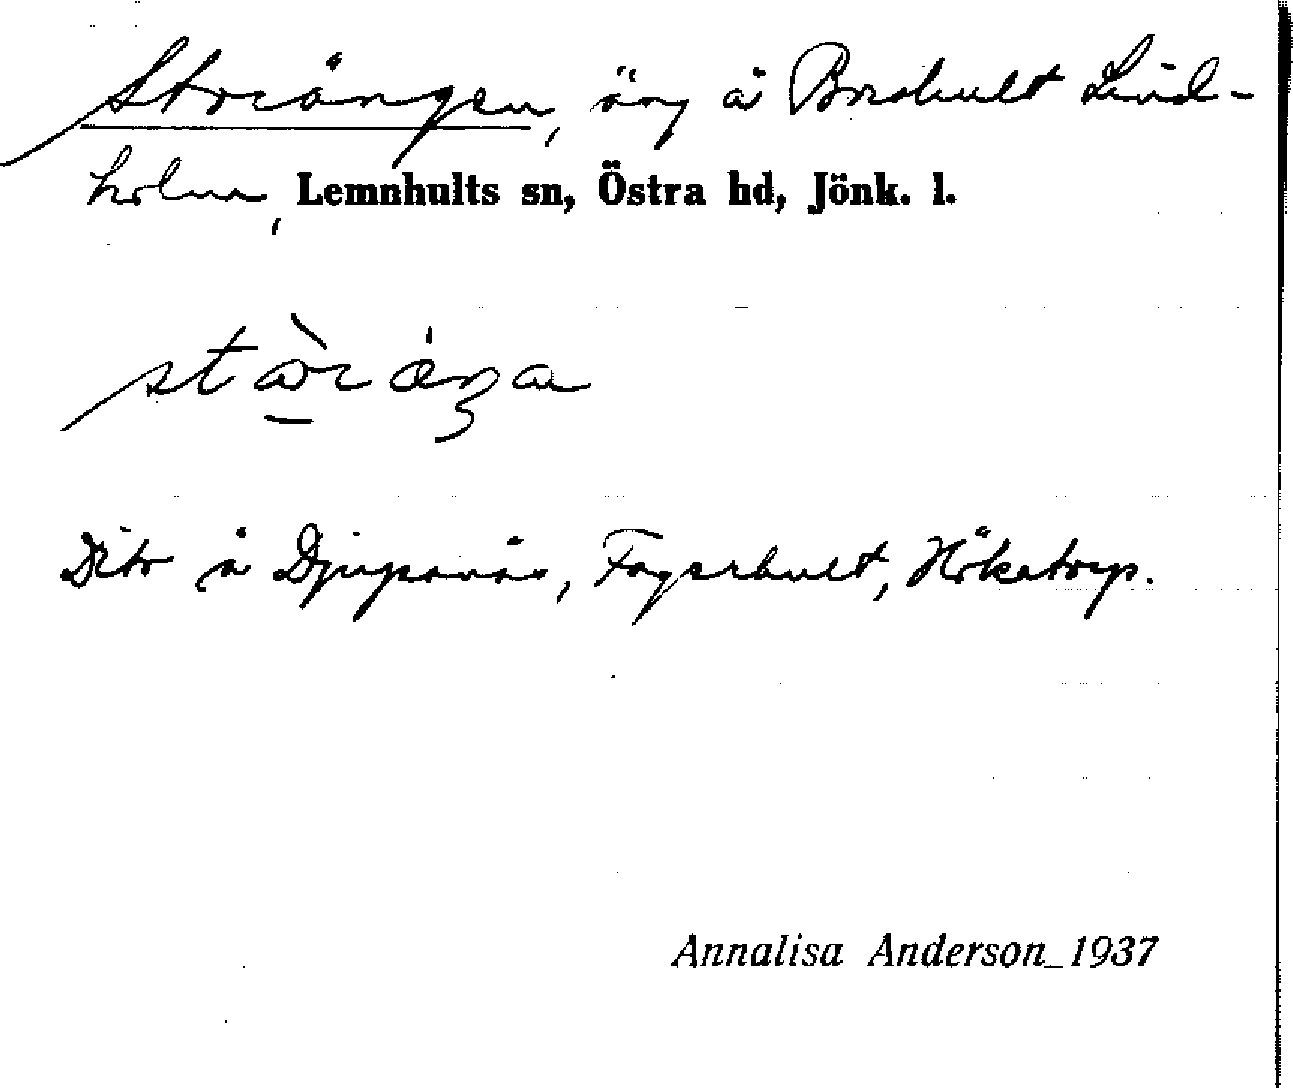 Storängen, äng å Broshult Lind-
holm, Lemnhults sn, Östra hd, Jönk. l.
Dito å Djupanäs, Fagerhult, Hökatorp.
Annalisa Anderson 1937